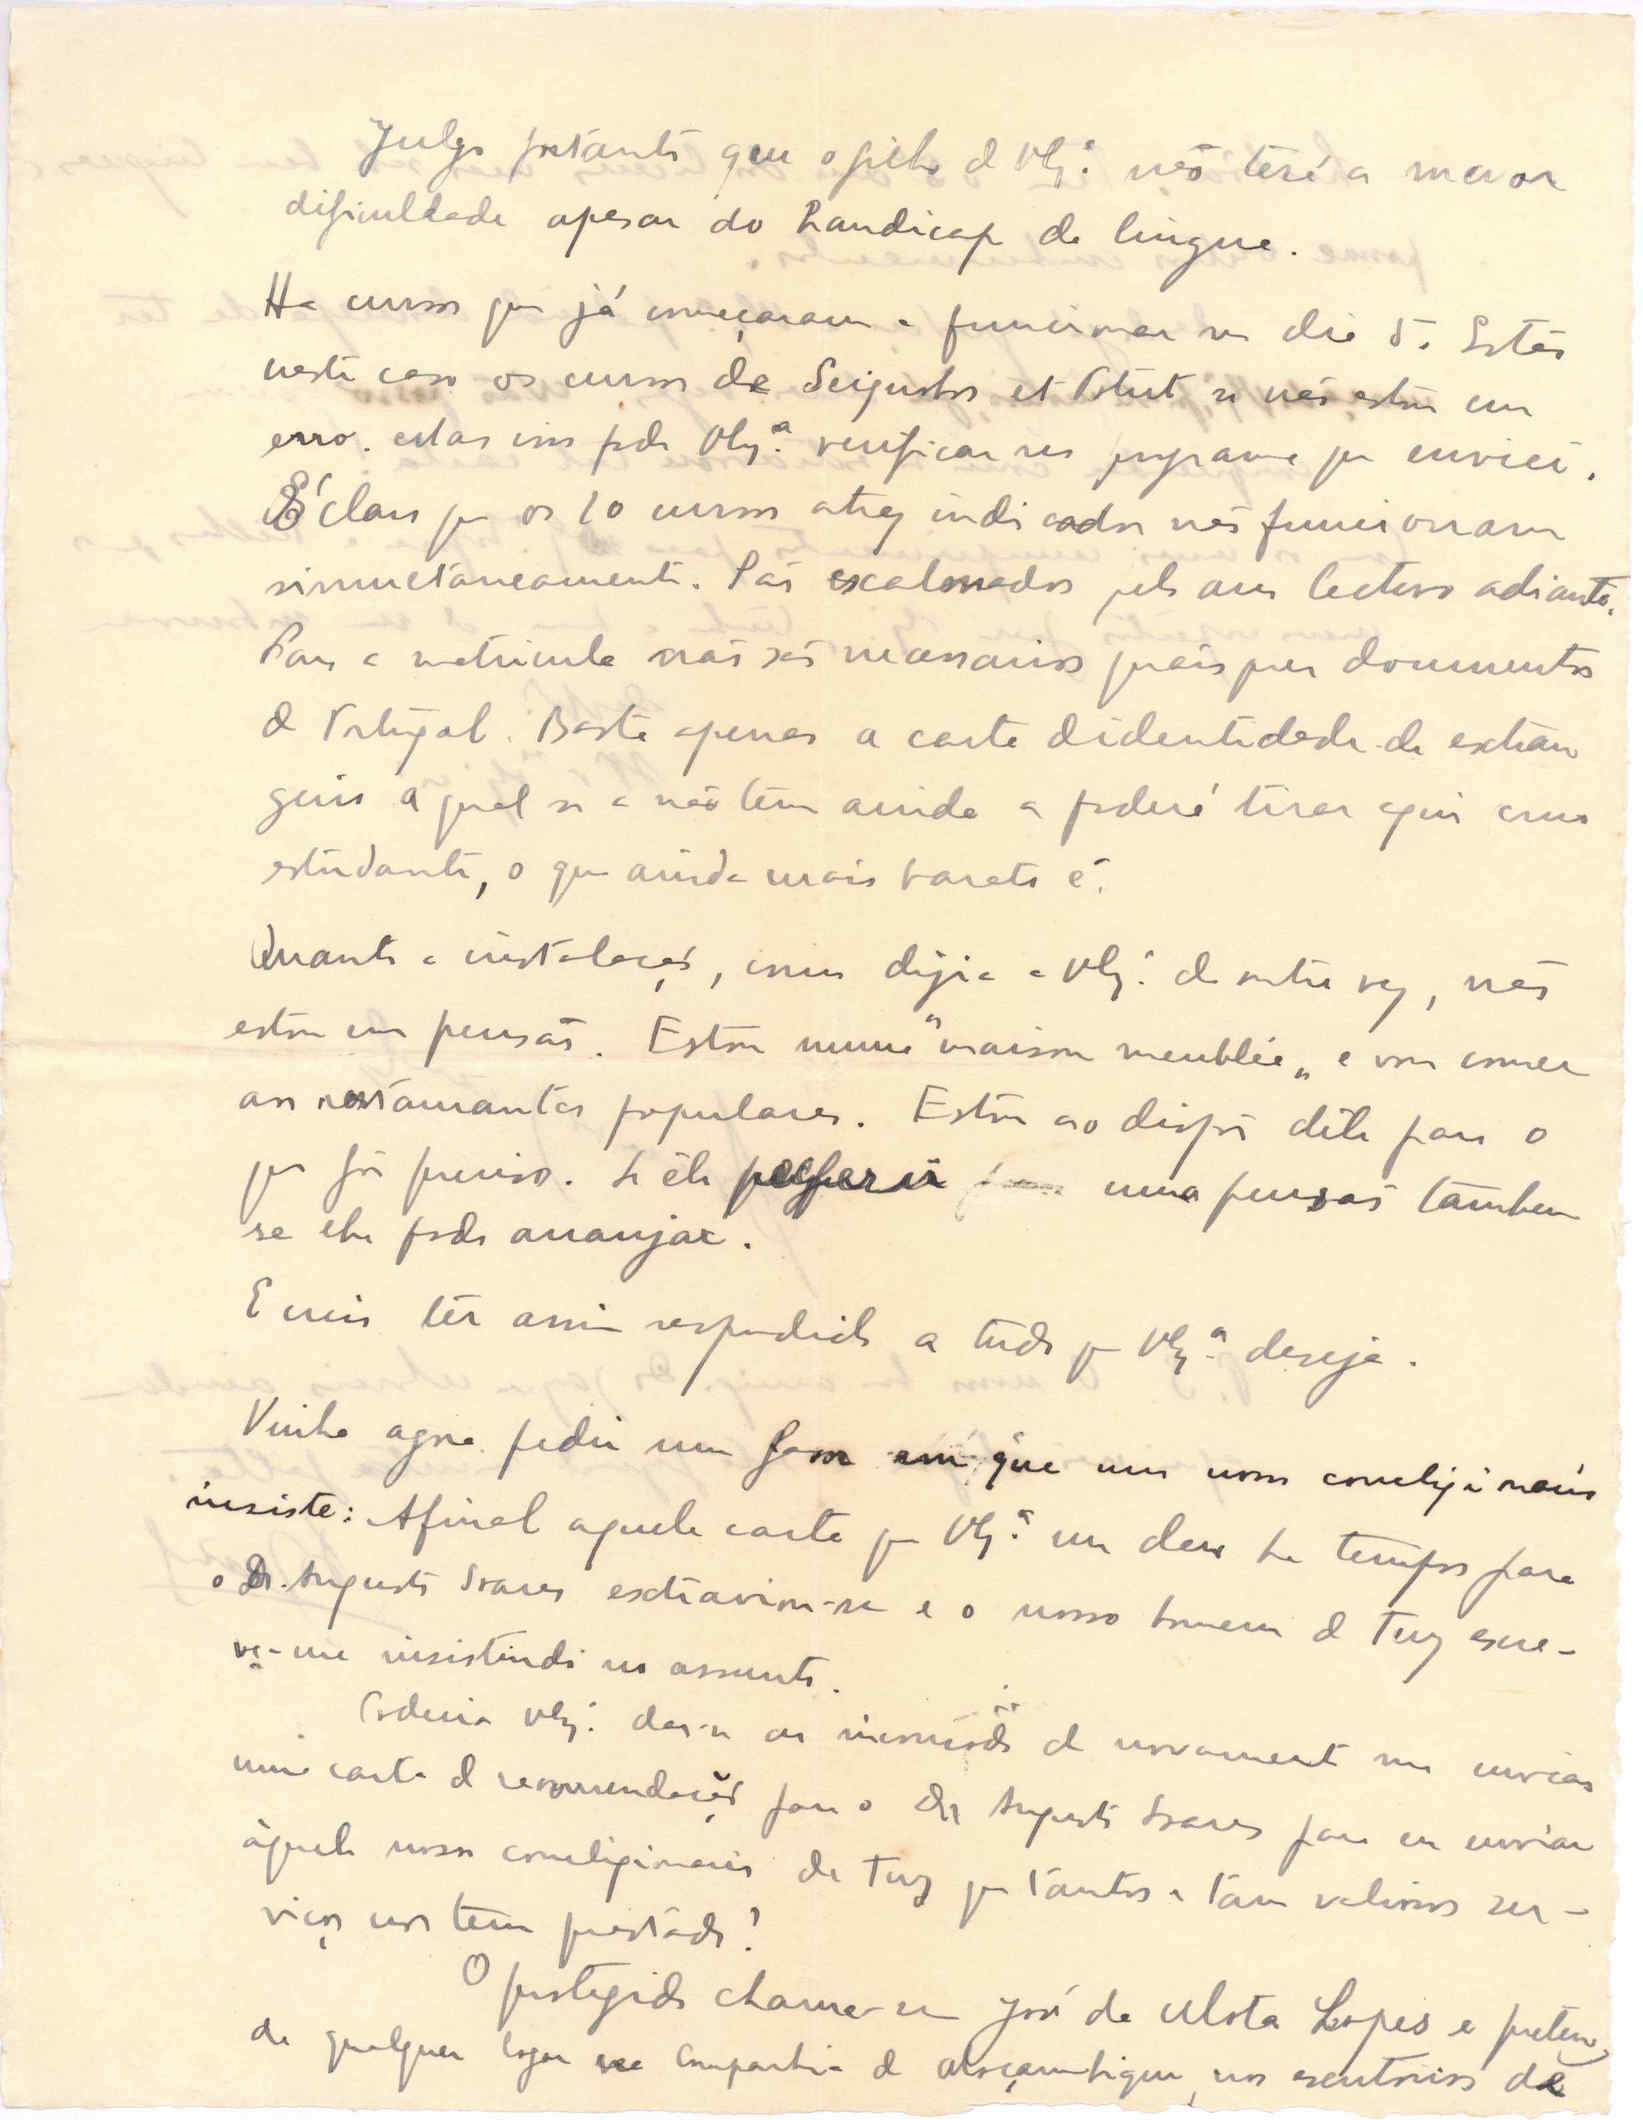 Julgo portanto que o filho de V. Ex.ª não terá a menor
dificuldade apesar do handicap da lingua.
Ha cursos que já começaram a funcionar no dia 5. Estão
neste caso os cursos de et Statut se não estou em
erro. isso pode V. Ex.ª verificar no programa que enviei.
É claro que os 10 cursos atraz indicados não funcionam
simultaneamente. São escalonados pelo ano lectivo adiante.
Para a matricula não são necessarios quaisquer documentos
de Portugal. Basta apenas a carta d'identidade de extran
geiro a qual se a não tem ainda a poderá tirar aqui como
estudante, o que ainda mais barato é.
Quanto a instalação, como dizia a V. Ex.ª da outra vez, não
estou em pensão. Estou numa "maison meublée" e vou comer
aos restaurantes populares. Estou ao dispôr dêle para o
que fôr preciso. Se êle preferir uma pensão tambem
se lhe pode arranjar.
E creio têr assim respondido a tudo que V. Ex.ª deseja.
Vinha agora pedir um favor em que um nosso correligionario
insiste: Afinal aquela carta que V. Ex.ª me deu ha tempos para
o Dr. Augusto Soares extraviou-se e o nosso homem de Tuy escre-
ve-me insistindo no assunto.
Poderia V. Ex.ª dar-se ao incomodo de novamente me enviar
uma carta de recomendação para o Dr Augusto Soares para eu enviar
àquele nosso correligionario de Tuy que tantos e tam valiosos ser-
viços nos tem prestado?
O protegido chama-se José da Mota Lopes e preten
de qualquer logar na Companhia de Moçambique, nos escritorios de